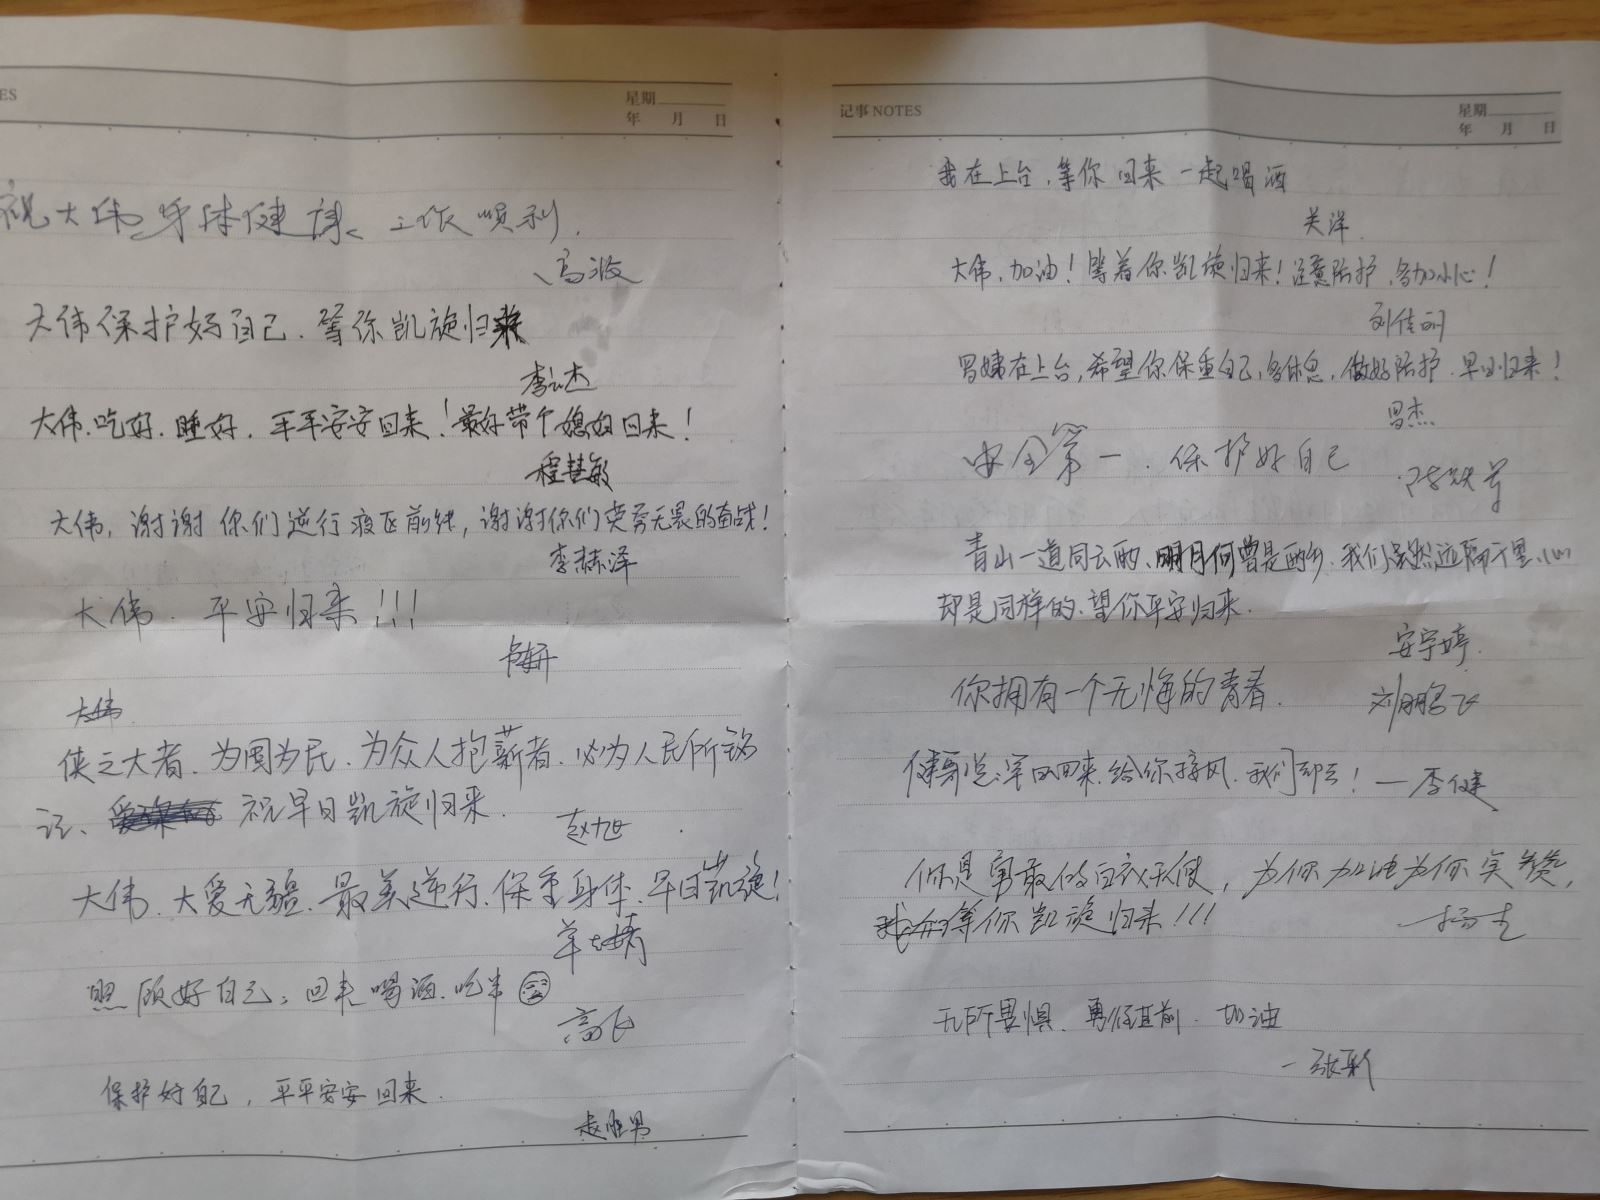 ES
星期
年 月 日
祝大伟身体健康、工作顺利.
高波
大伟保护好自己.等你凯旋归来
李云杰
大伟.吃好.睡好.平平安安回来!最好带个媳妇回来!
程慧敏
大伟,谢谢你们逆行疫区前线,谢谢你们英勇无畏的奋战!
李赫泽
大伟.平安归来!!!
大伟
侠之大者.为国为民.为众人抱薪者.必为人民所铭
记、 祝早日凯旋归来.
赵旭
大伟.大爱无疆.最美逆行.保重身体.早日凯旋!
照顾好自己,回来喝酒.吃串
高飞
保护好自己,平平安安回来.
赵胜男
记事 NOTES
星期
年 月 日
我在上台,等你回来一起喝酒
关洋.
大伟,加油!等着你凯旋归来!注意防护,多加小心!
刘佳
姨在上台,希望你保重自己,多休息,做好防护.早日归来!
杰
安全第一.保护好自己
青山一道同云雨、明月何曾是两乡.我们虽然远隔千里、心
却是同样的.望你平安归来.
安宇婷.
你拥有一个无悔的青春.
刘鹏飞
健哥说:军回来.给你接风.我们都去!—李健
你是勇敢的白衣天使,为你加油为你点赞,
我们等你凯旋归来!!!
无所畏惧.勇往直前.加油